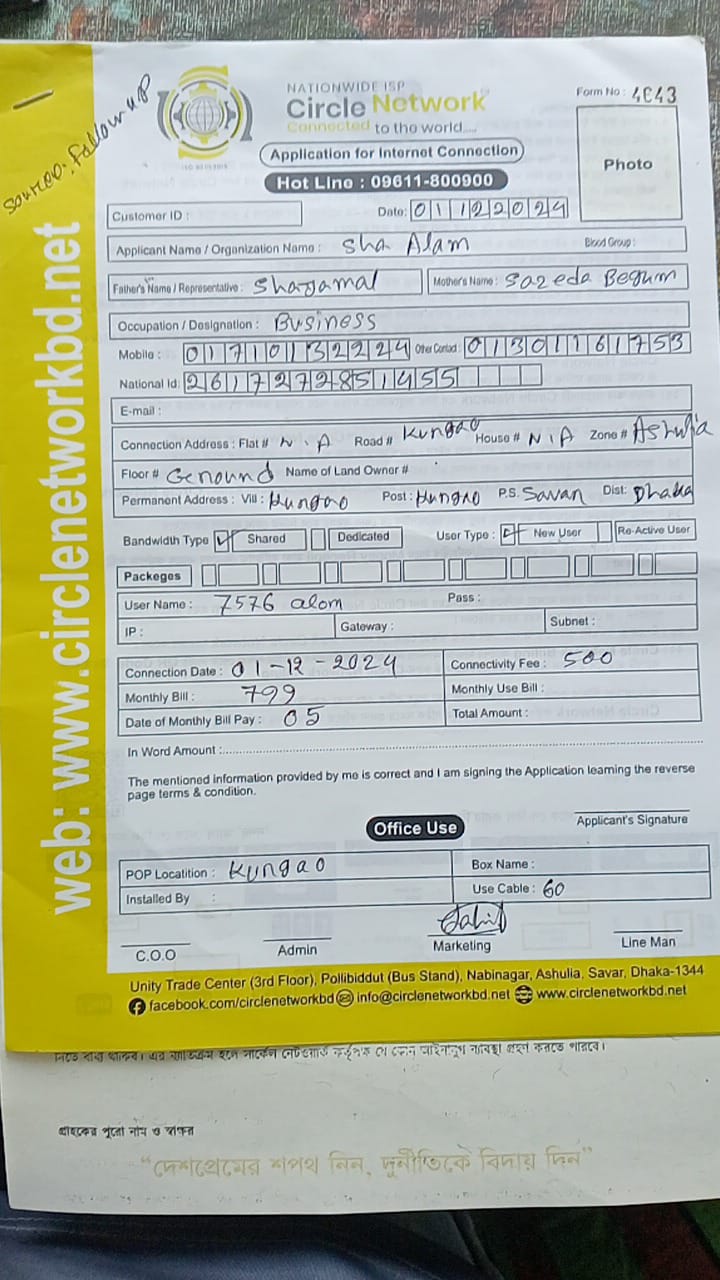 Source: Follow up
NATIONWIDE ISP
Circle Network
Connected to the world....
Form No : 4843
Application for Internet Connection
Photo
Hot Line : 09611-800900
Customer ID :
Date: 01122024
Applicant Name / Organization Name : Sha Alam Blood Group :
Father's Name / Representative : Shajamal Mother's Name : Sazeda Begum
Occupation / Designation : Business
Mobile : 01710132224 Other Contact : 01301161753
National Id: 2617272851455
E-mail :
Connection Address : Flat # N.A Road # Kungao House # N.A Zone # Ashulia
Floor # Ground Name of Land Owner #
Permanent Address : Vill : Kungao Post : Kungao P.S. Savar Dist: Dhaka
Bandwidth Type Shared Dedicated User Type : New User Re-Active User
Packeges
User Name : 7576 alom Pass :
IP : Gateway : Subnet :
Connection Date : 01-12-2024 Connectivity Fee : 500
Monthly Bill : 799 Monthly Use Bill :
Date of Monthly Bill Pay : 05 Total Amount :
In Word Amount :
The mentioned information provided by me is correct and I am signing the Application learning the reverse
page terms & condition.
Applicant's Signature
Office Use
POP Locatition : Kungao Box Name :
Installed By : Use Cable : 60
C.O.O Admin Marketing Line Man
Unity Trade Center (3rd Floor), Pollibiddut (Bus Stand), Nabinagar, Ashulia, Savar, Dhaka-1344
facebook.com/circlenetworkbd info@circlenetworkbd.net www.circlenetworkbd.net
web: www.circlenetworkbd.net
গ্রাহকের পুরো নাম ও স্বাক্ষর
“দেশপ্রেমের শপথ নিন, দুর্নীতিকে বিদায় দিন”